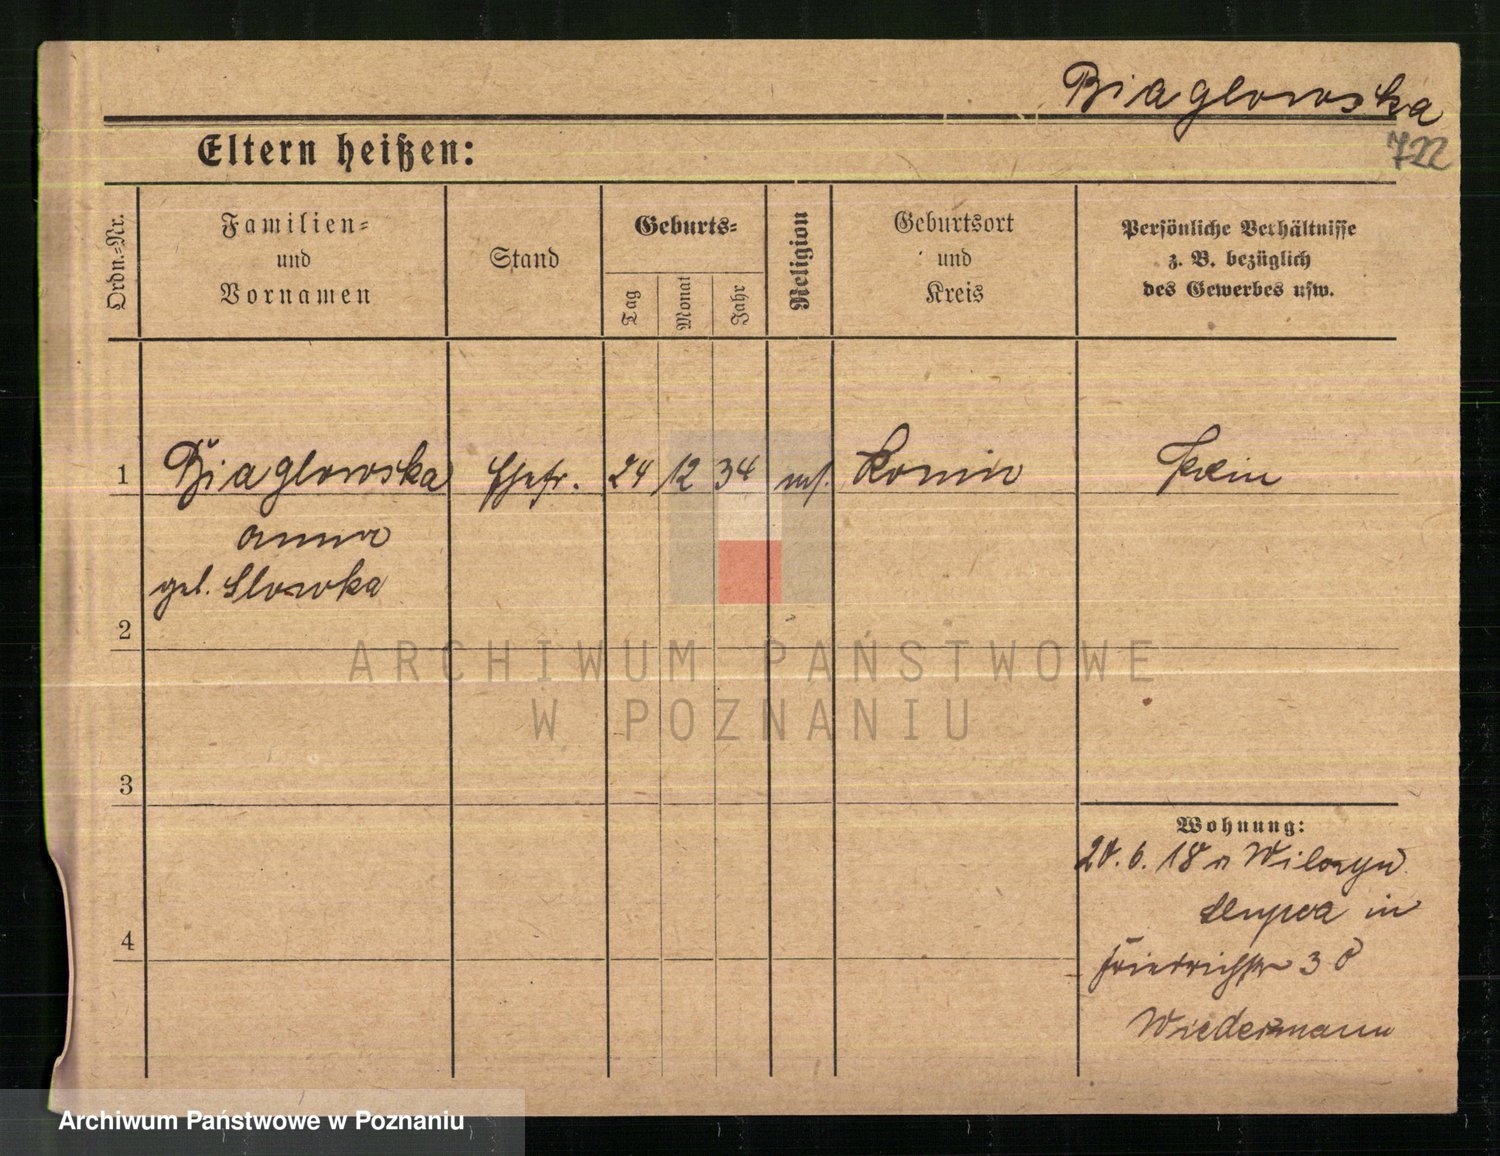 Biaglowska
722
Eltern heißen:
Ordn.-Nr.
Familien-
und
Vornamen
Stand
Geburts-
Tag
Monat
Jahr
Religion
Geburtsort
und
Kreis
Persönliche Verhältnisse
z. B. bezüglich
des Gewerbes usw.
1 Biaglowska Ehefr. 24 12 34 Konin
Anna
geb. Slowka
2
ARCHIWUM PAŃSTWOWE
W POZNANIU
3
Wohnung:
20. 6. 18 n Wilczyn
Slupca in
Friedrichstr 30
4
Wiedermann
Archiwum Państwowe w Poznaniu